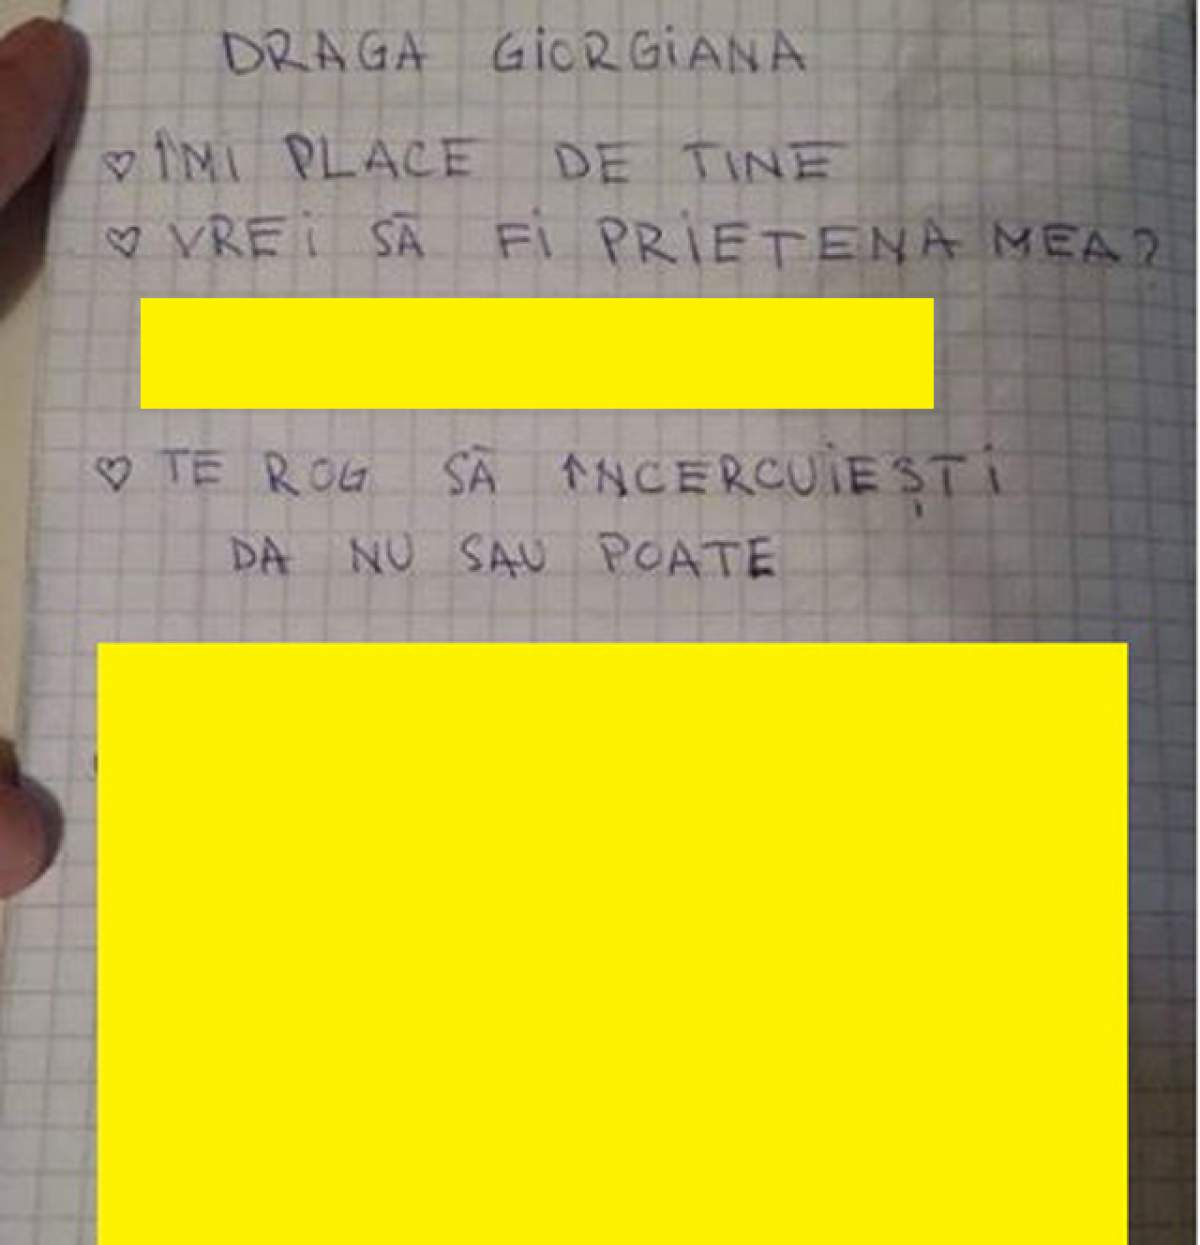 DRAGA GiORGiANA
♡ ÎMI PLACE DE TINE
♡ VREi SĂ Fi PRiETENA MEA?
♡ TE ROG SĂ ÎNCERCUiEȘTi
DA NU SAU POATE